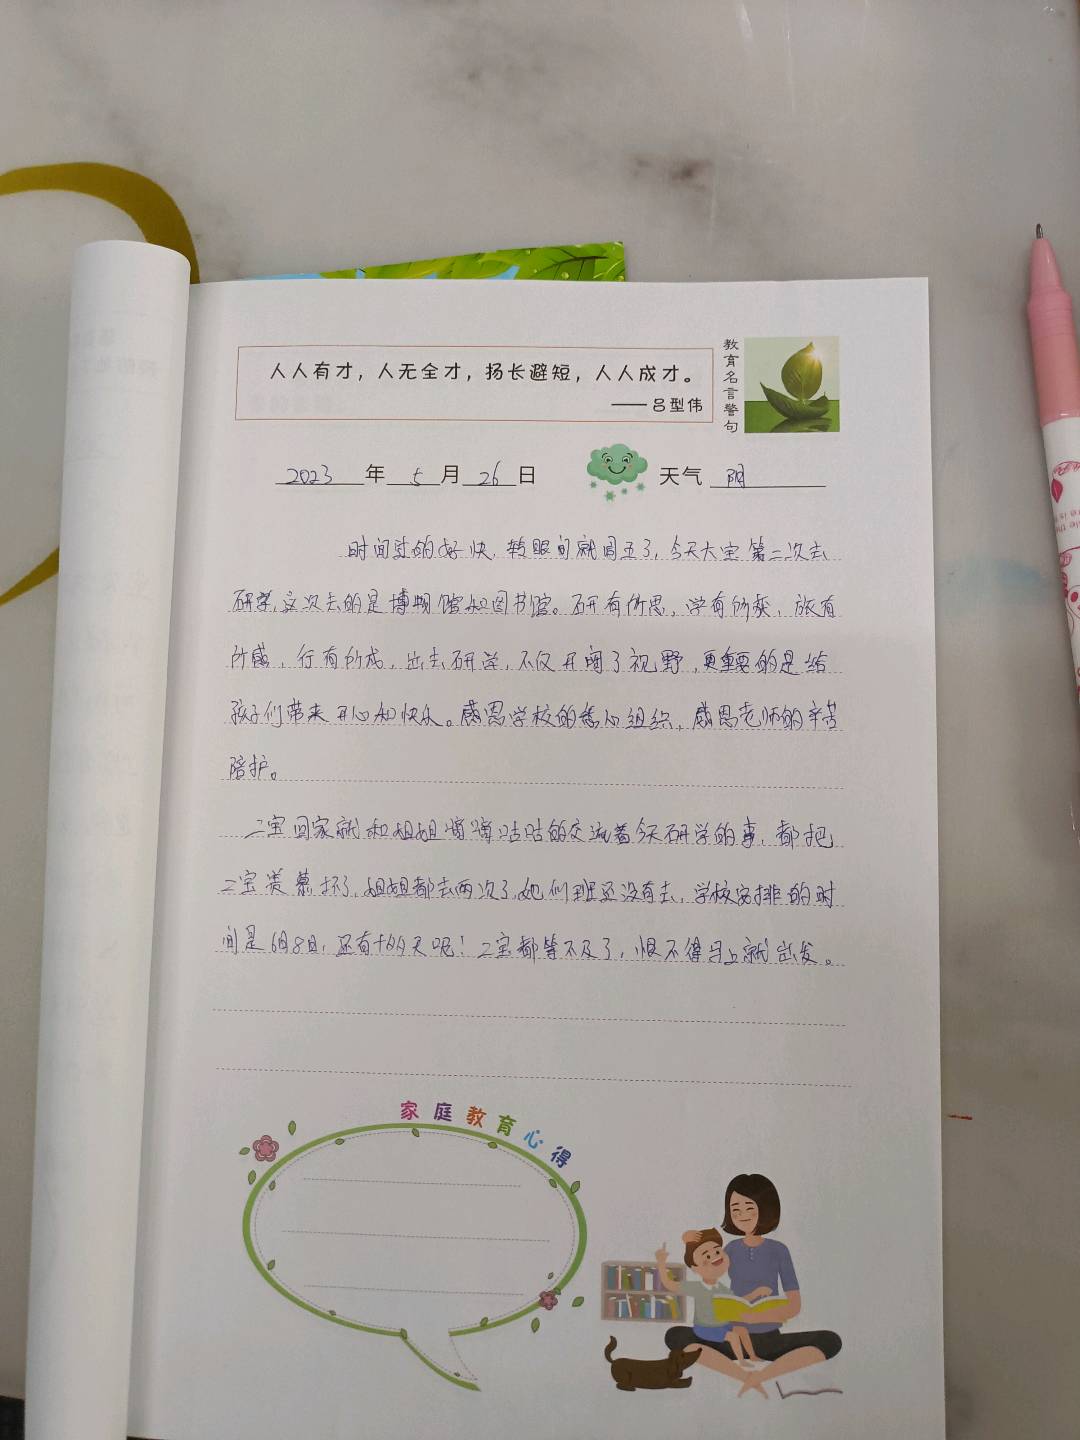 人人有才，人无全才，扬长避短，人人成才。
——吕型伟
教育名言警句
2023年5月26日 天气 阴
时间过的好快，转眼间就周五了，今天大宝第二次去
研学，这次去的是博物馆和图书馆。研有所思，学有所获，旅有
所感，行有所成，出去研学，不仅开阔了视野，更重要的是给
孩子们带来开心和快乐。感恩学校的悉心组织，感恩老师的辛苦
陪护。
二宝回家就和姐姐嘀嘀咕咕的交流着今天研学的事，都把
二宝羡慕坏了，姐姐都去两次了，她们班还没有去，学校安排的时
间是6月8日，还有十多天呢！二宝都等不及了，恨不得马上就出发。
家庭教育心得